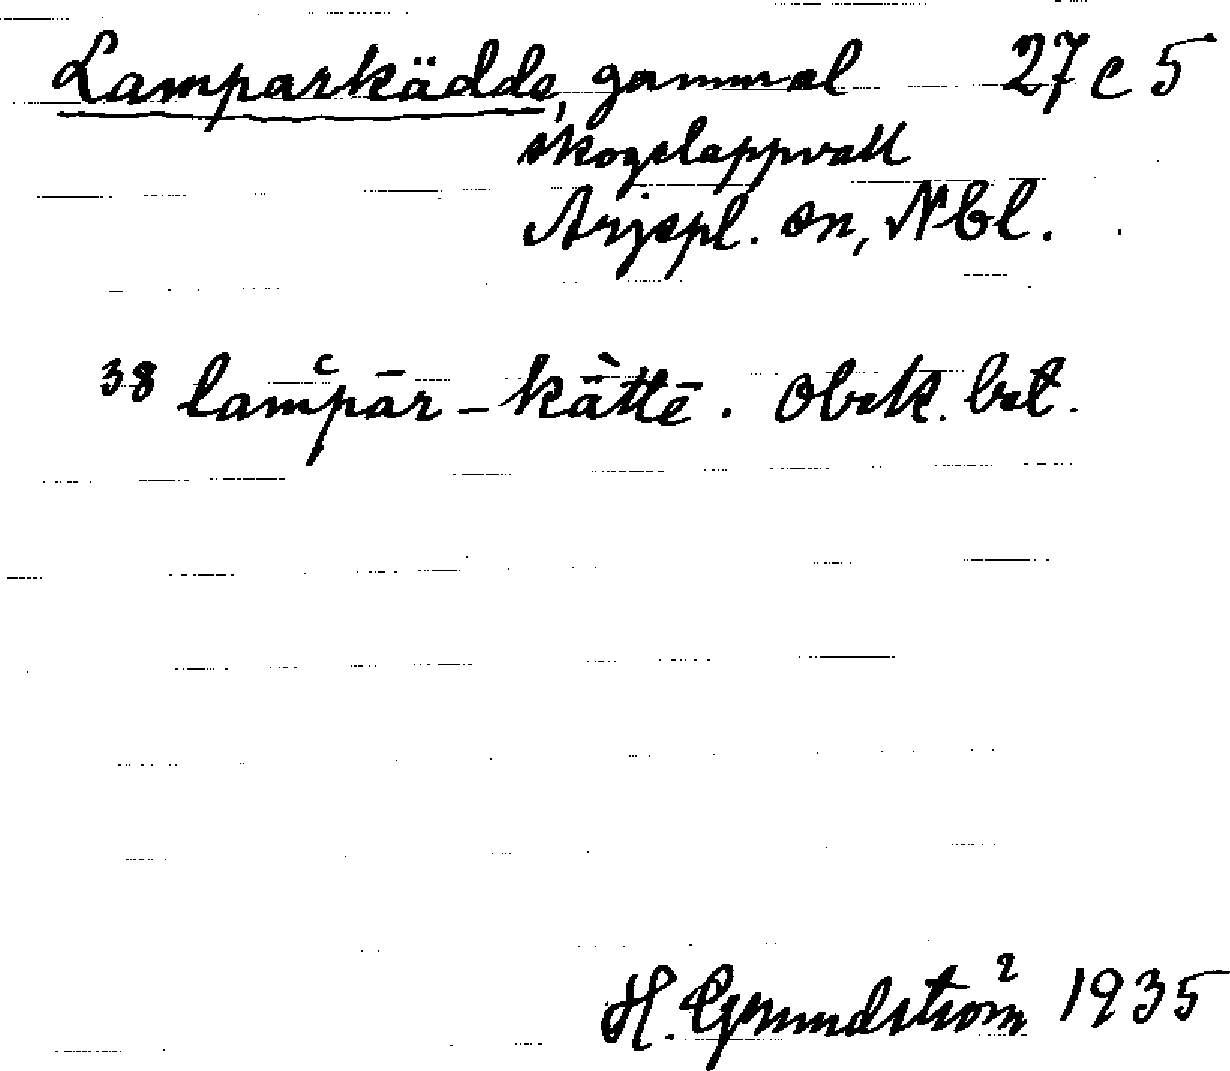 Lamparkädde, gammal 27 c 5
skogslappvall
Arjepl. sn, Nbl.
38 lam̆pār - kä̀ttē. Obek. bet.
H. Grundström 1935